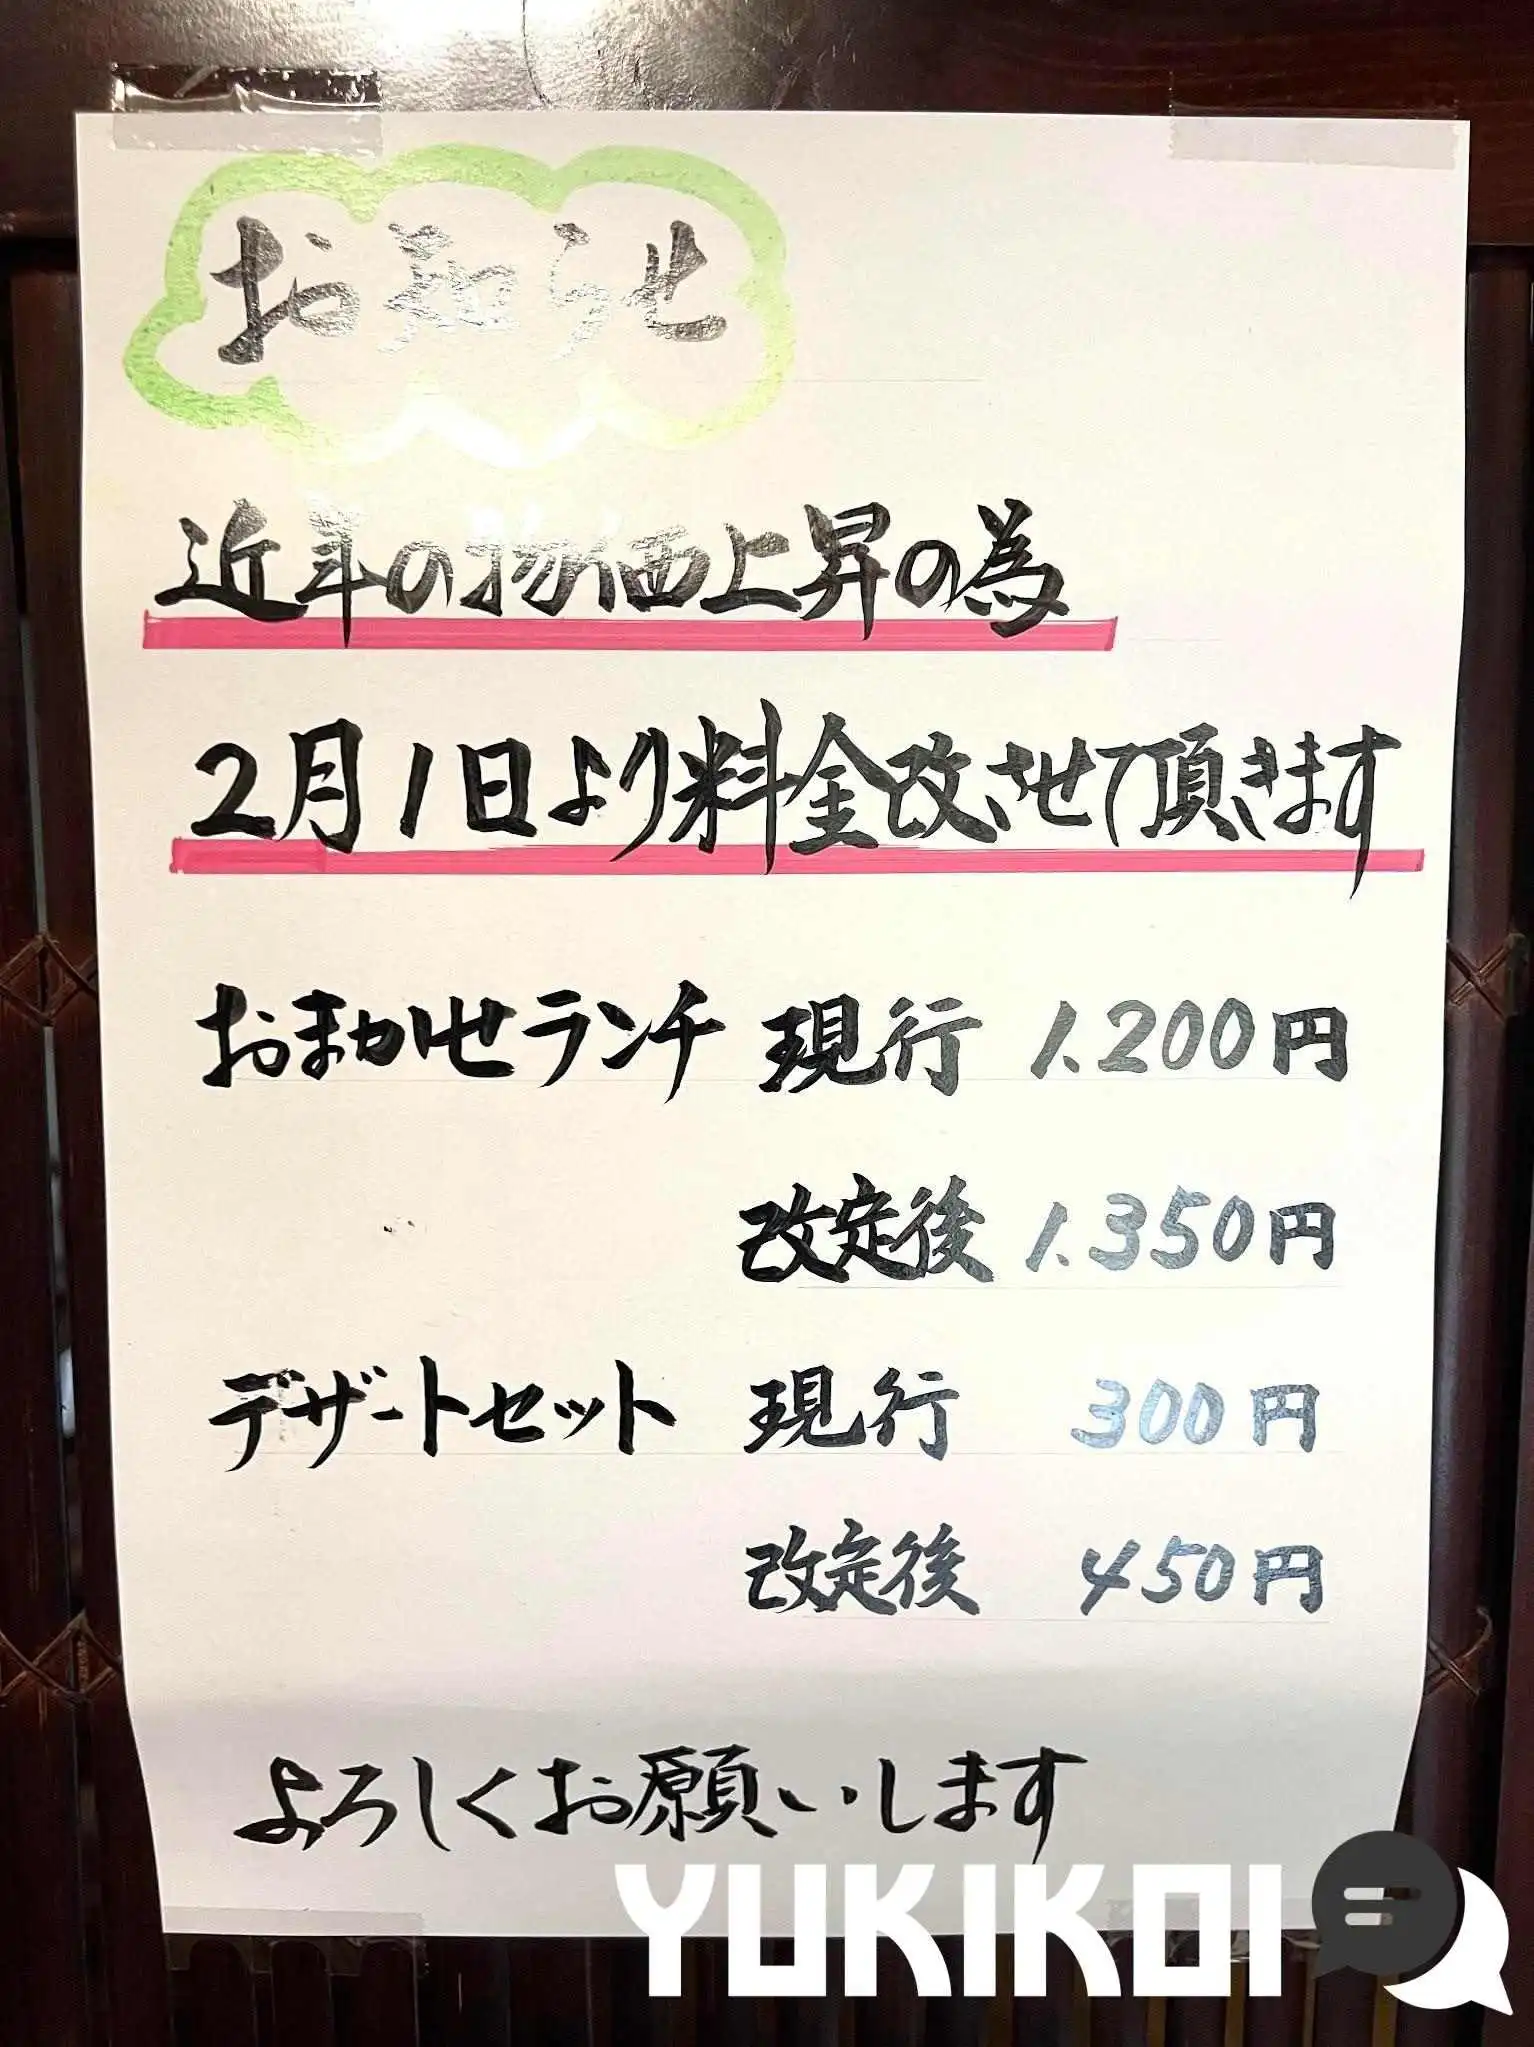 お知らせ
近年の物価上昇の為
2月1日より料金改させて頂きます
おまかせランチ 現行 1.200円
改定後 1.350円
デザートセット 現行 300円
改定後 450円
よろしくお願いします
YUKIKOI